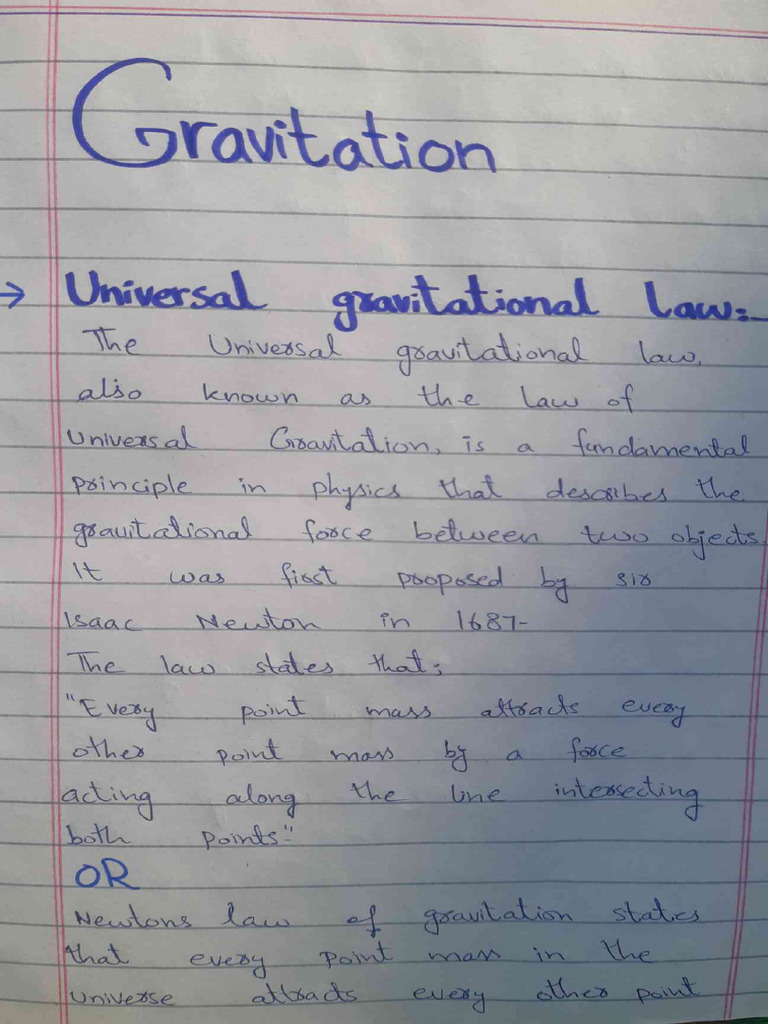 Gravitation
→ Universal gravitational law:-
The Universal gravitational law,
also known as the law of
Universal Gravitation, is a fundamental
principle in physics that describes the
gravitational force between two objects.
It was first proposed by sir
Isaac Newton in 1687-
The law states that;
"Every point mass attracts every
other point mass by a force
acting along the line intersecting
both points."
OR
Newtons law of gravitation states
that every point mass in the
universe attracts every other point